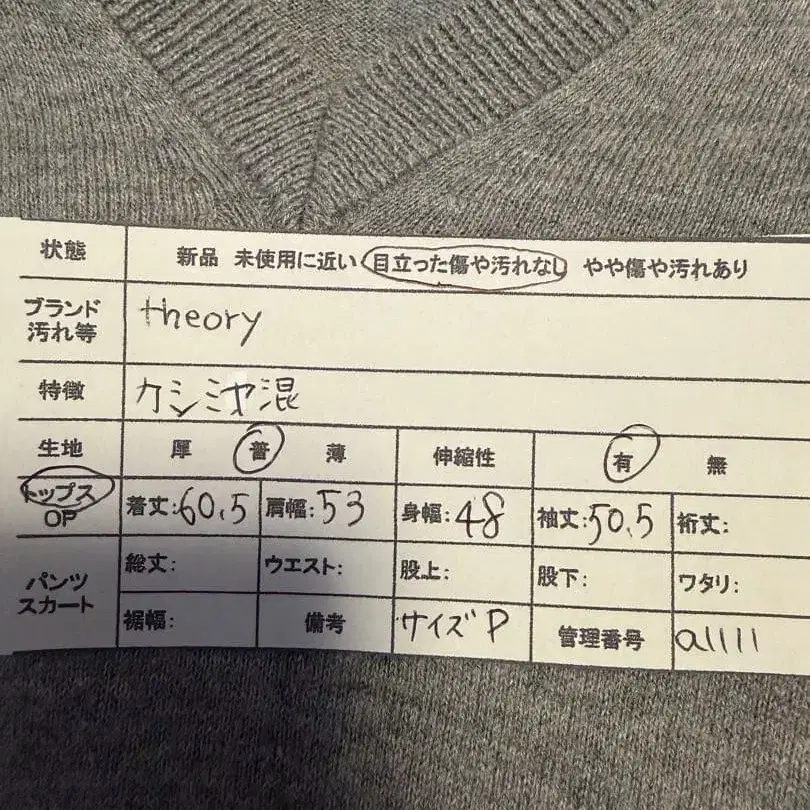 状態 新品 未使用に近い 目立った傷や汚れなし やや傷や汚れあり
ブランド 汚れ等 theory
特徴 カシミヤ混
生地 厚 普 薄 伸縮性 有 無
トップス OP 着丈:60.5 肩幅:53 身幅:48 袖丈:50.5 裄丈:
パンツ スカート 総丈: ウエスト: 股上: 股下: ワタリ:
裾幅: 備考 サイズP 管理番号 a1111